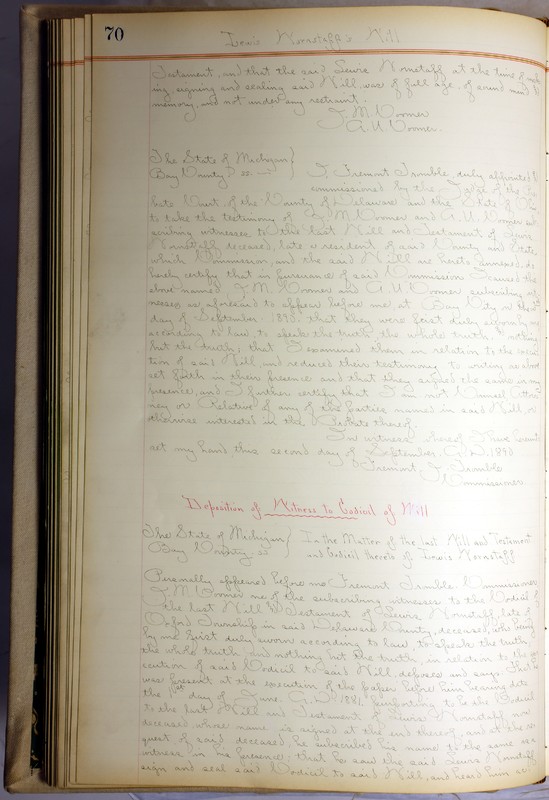 70
Lewis Wornstaff's Will
Testament, and that the said Lewis Wornstaff at the time of
ing, signing and sealing said Will, was of full age, of sound mind &
memory, and not under any restraint.
F. M. Voomer
A. U. Voomer.
The State of Michigan }
Bay County ss. I, Fremont Tromble, duly appointed &
commissioned by the Judge of the Pro
bate Court, of the County of Delaware and the State of Ohio
to take the testimony of F. M. Voomer and A. U. Voomer sub
scribing witnesses to the last Will and Testament of Lewis
Wornstaff deceased, late a resident of said County and State,
which Commission, and the said Will are hereto annexed, do
hereby certify that in pursuance of said Commission I caused the
above named, F. M. Voomer and A. U. Voomer subscribing wit
nesses as aforesaid to appear before me, at Bay City on the 2nd
day of September 1890. that they were first duly sworn by me
according to law, to speak the truth, the whole truth, & nothing
but the truth; that I examined them in relation to the execu
tion of said Will, and reduced their testimony to writing as above
set forth in their presence and that they signed the same in my
presence, and I further certify that I am not Counsel Attor
ney or Relative of any of the parties name in said Will, or
otherwise interested in the Probate thereof.
In witness whereof I have hereunto
set my hand this second day of September A. D. 1890
Fremont J. Tromble
Commissioner
Deposition of Witness to Codicil of Will
The State of Michigan } In the Matter of the last Will and Testament
Bay County ss } and Codicil thereto of Lewis Wornstaff
Personally appeared before me Fremont Tromble Commissioner
F. M. Voomer one of the subscribing witnesses to the Codicil of
the last Will & Testament of Lewis Wornstaff, late of
Oxford Township in said Delaware County, deceased, who being
by me first duly sworn according to law to speak the truth
the whole truth and nothing but the truth, in relation to the ex
ecution of said Codicil to said Will, deposes and says: That he
was present at the execution of the paper before him bearing date
the 1st day of June. A. D. 1882, purporting to be the Codicil
to the last Will and Testament of Lewis Wornstaff, now
deceased whose name is signed at the end thereof, and at the re
quest of said deceased, he subscribed his name to the same as a
witness in his presence; that he saw the said Lewis Wornstaff
sign and seal said Codicil to said Will, and heard him